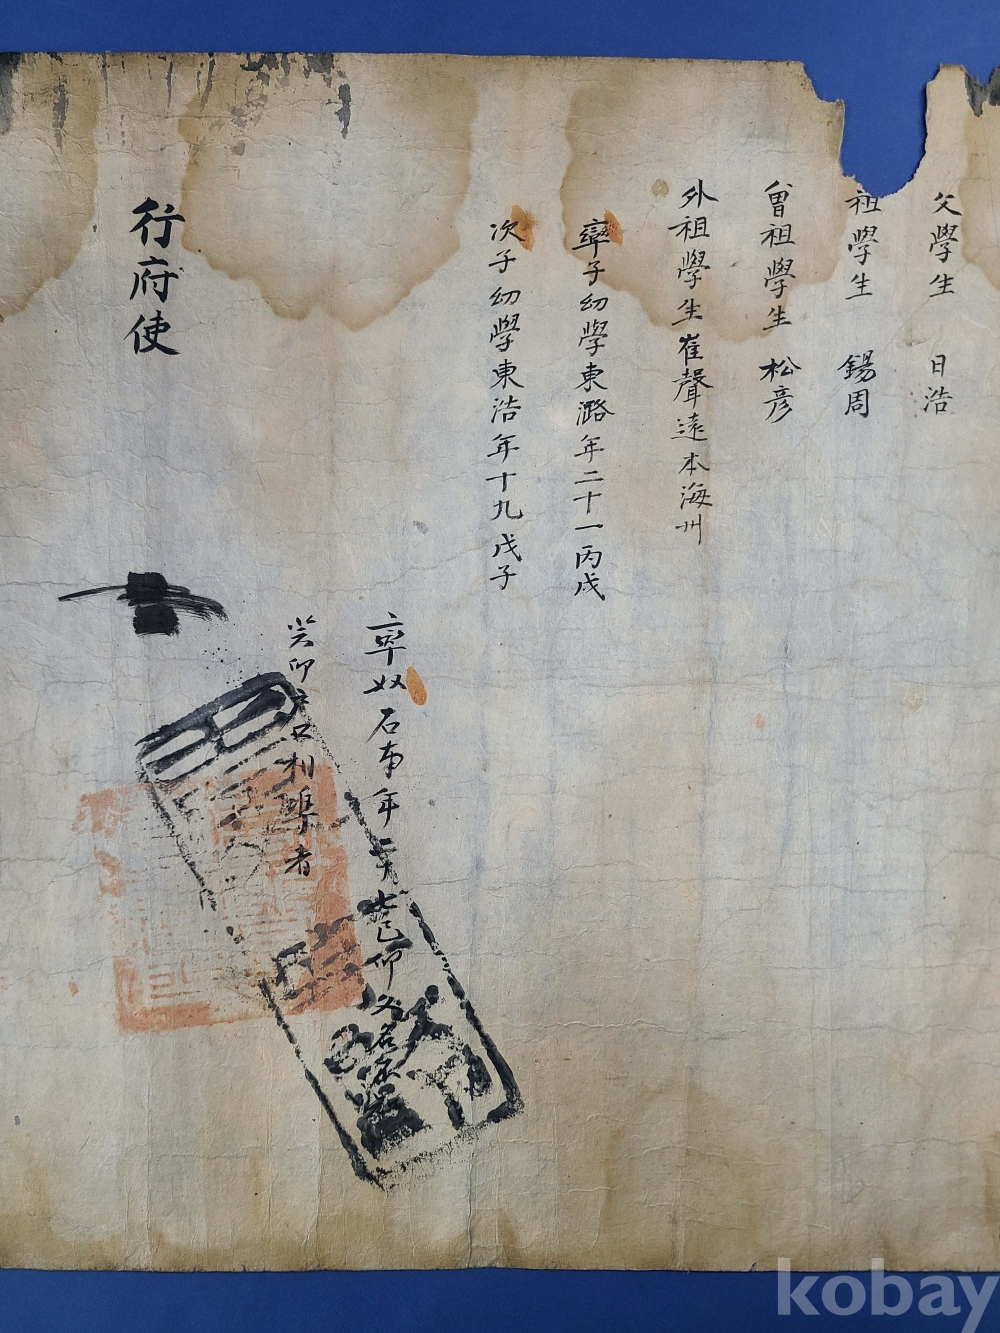 父學生 日浩
祖學生 錫周
曾祖學生 松彦
外祖學生崔聲遠本海州
率子幼學東潞年二十一丙戌
次子幼學東浩年十九戊子
率奴石 年 卯父名
癸卯戶口相準者
行府使
kobay